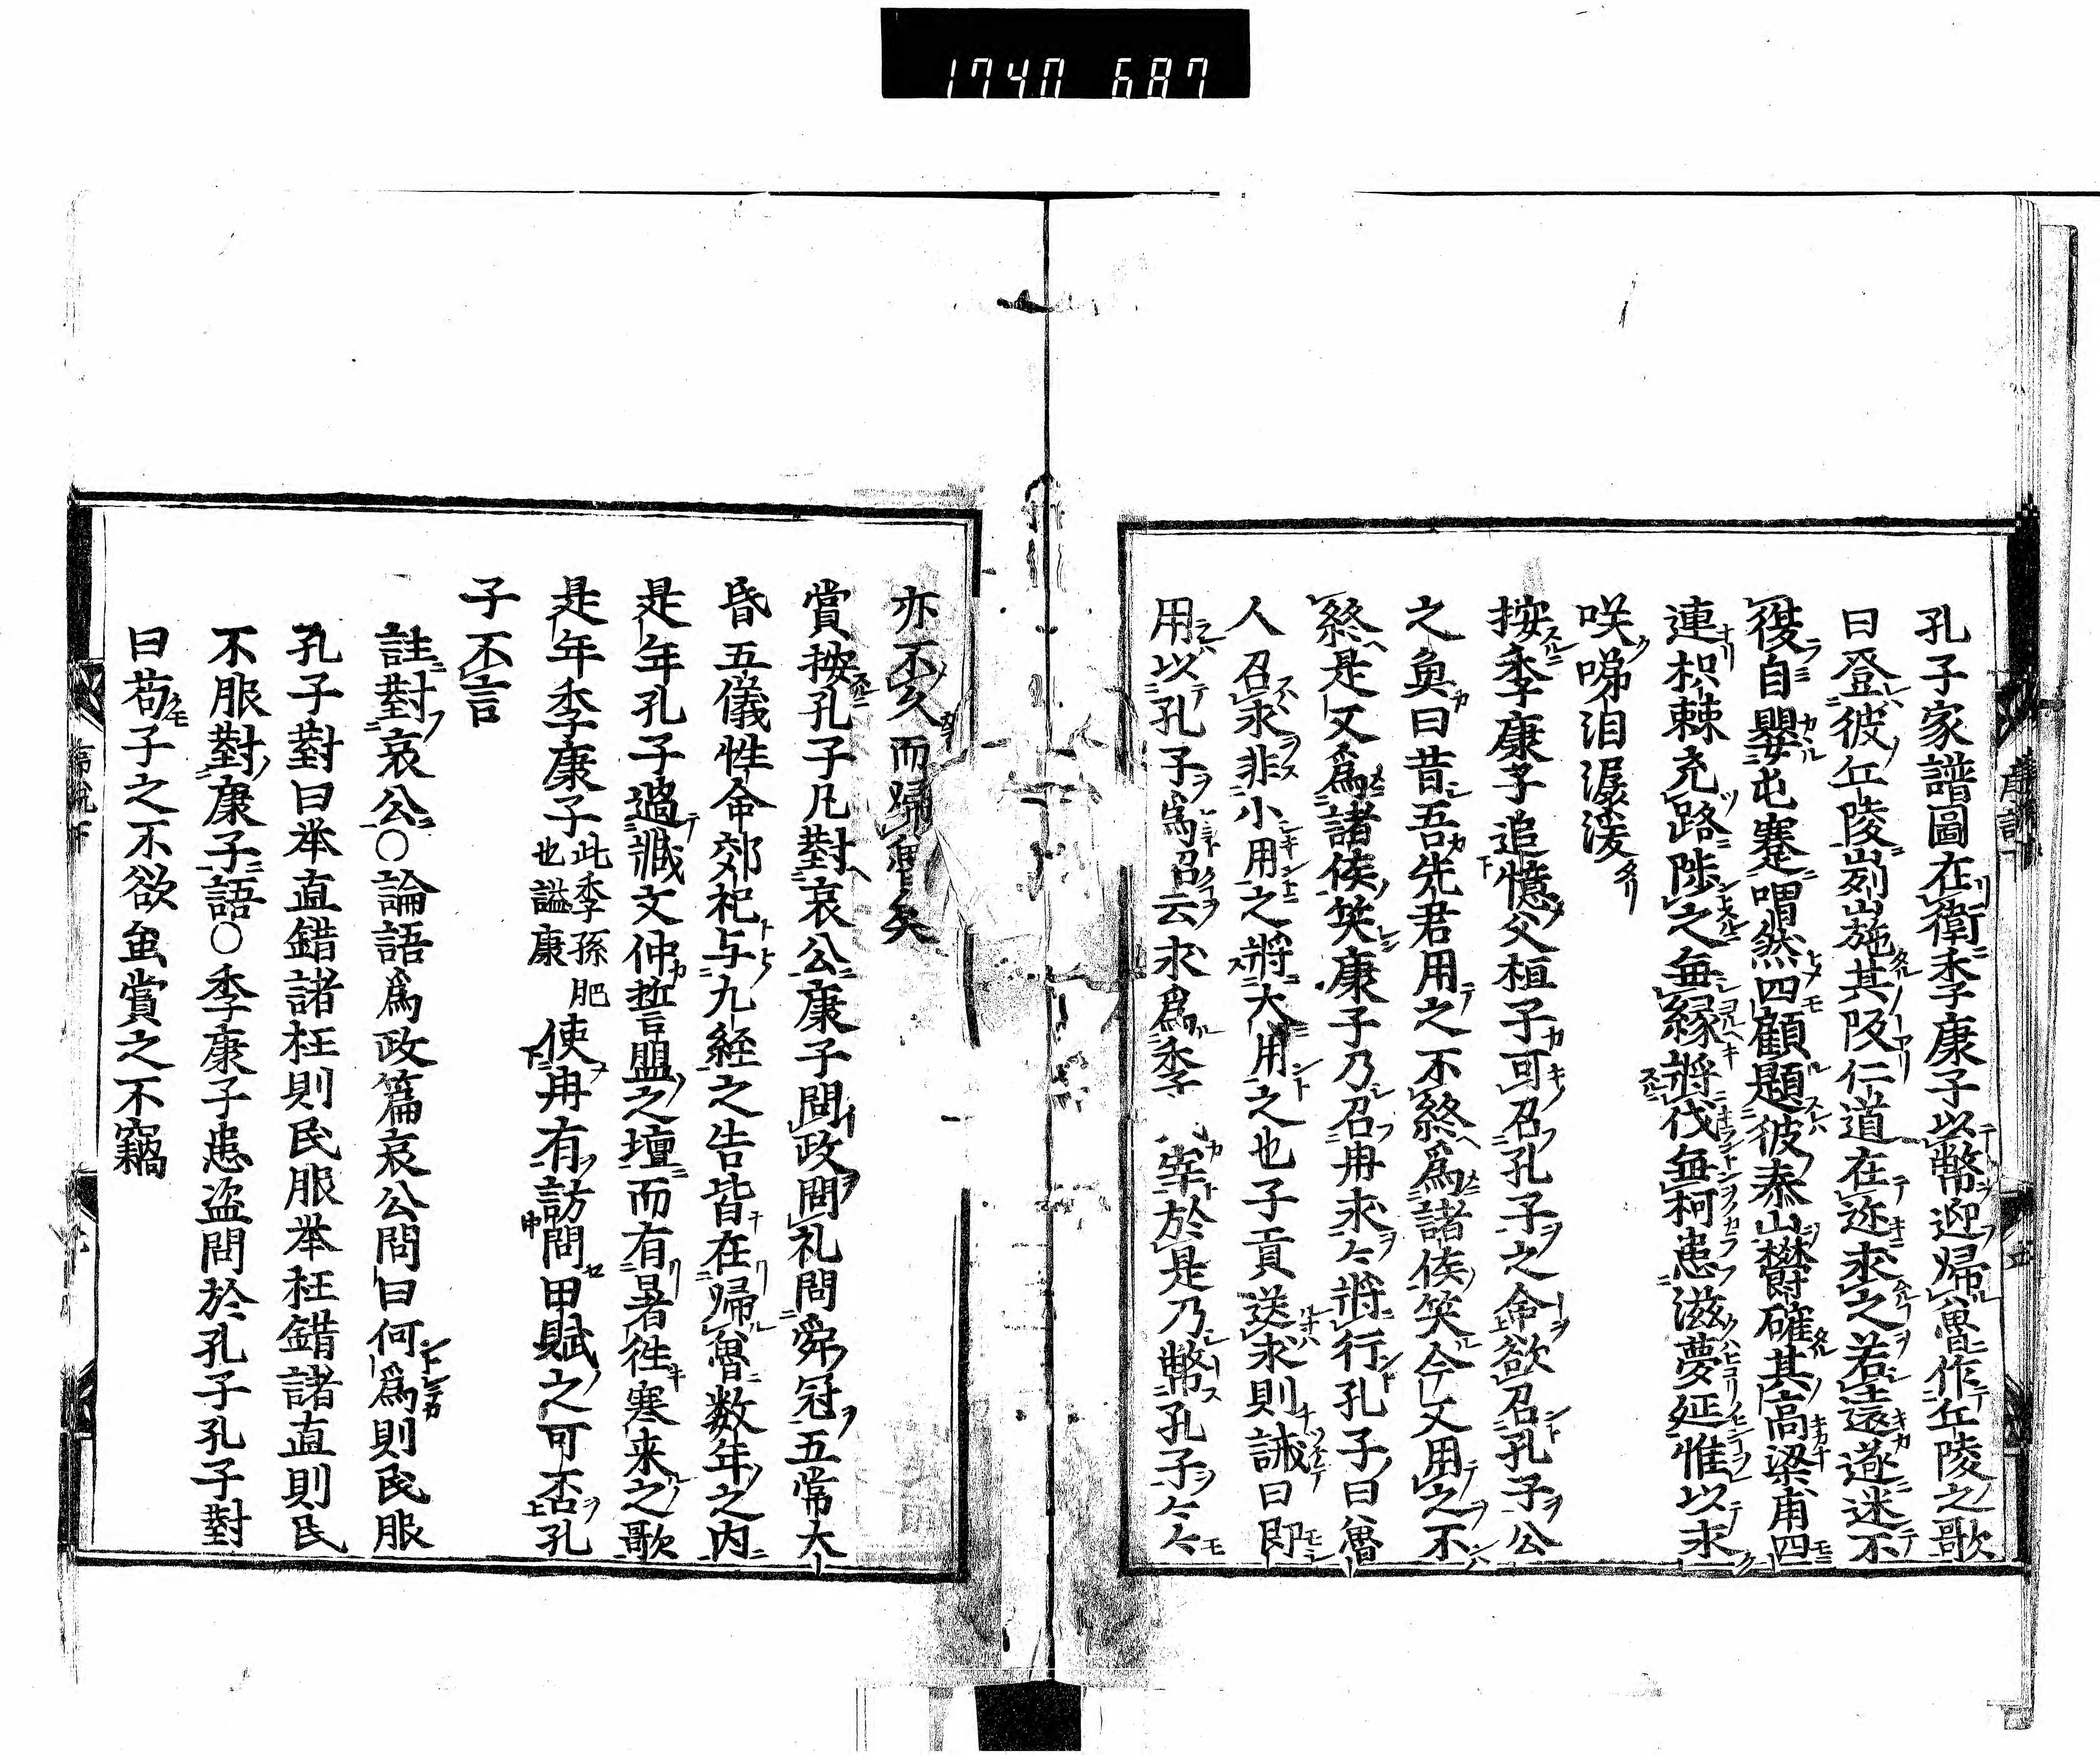 1740 687
孔子家譜圖在衛季康子以幣迎歸魯作丘陵之歌
曰登彼丘陵峛崺其阪仁道在迩求之若遠遂迷不
復自嬰屯蹇喟然四顧題彼泰山欝確其高梁甫四
連枳棘充路陟之無縁將伐無柯患滋夢延惟以永
咲啼泪潺湲
按季康子追憶父桓子可召孔子之命欲召孔子公
之魚曰昔吾先君用之不終爲諸侯笑今又用之不
終是又爲諸侯笑康子乃召冉求々將行孔子曰魯
人召求非小用之將大用之也子貢送求則誡曰即
用以孔子爲召云求爲季 宰於是乃幣孔子々々
亦不久而歸魯矣
賞按孔子凡對哀公康子問政問礼問舜冠五常大
昏五儀性命郊祀与九経之告皆在歸魯数年之内
是年孔子過臧文仲誓盟之壇而有暑徃寒来之歌
是年季康子此季孫肥也謚康使冉有訪問甲賦之可否孔
子不言
註對哀公○論語爲政篇哀公問曰何爲則民服
孔子對曰举直錯諸枉則民服举枉錯諸直則民
不服對康子語○季康子患盗問於孔子孔子對
曰苟子之不欲虽賞之不竊